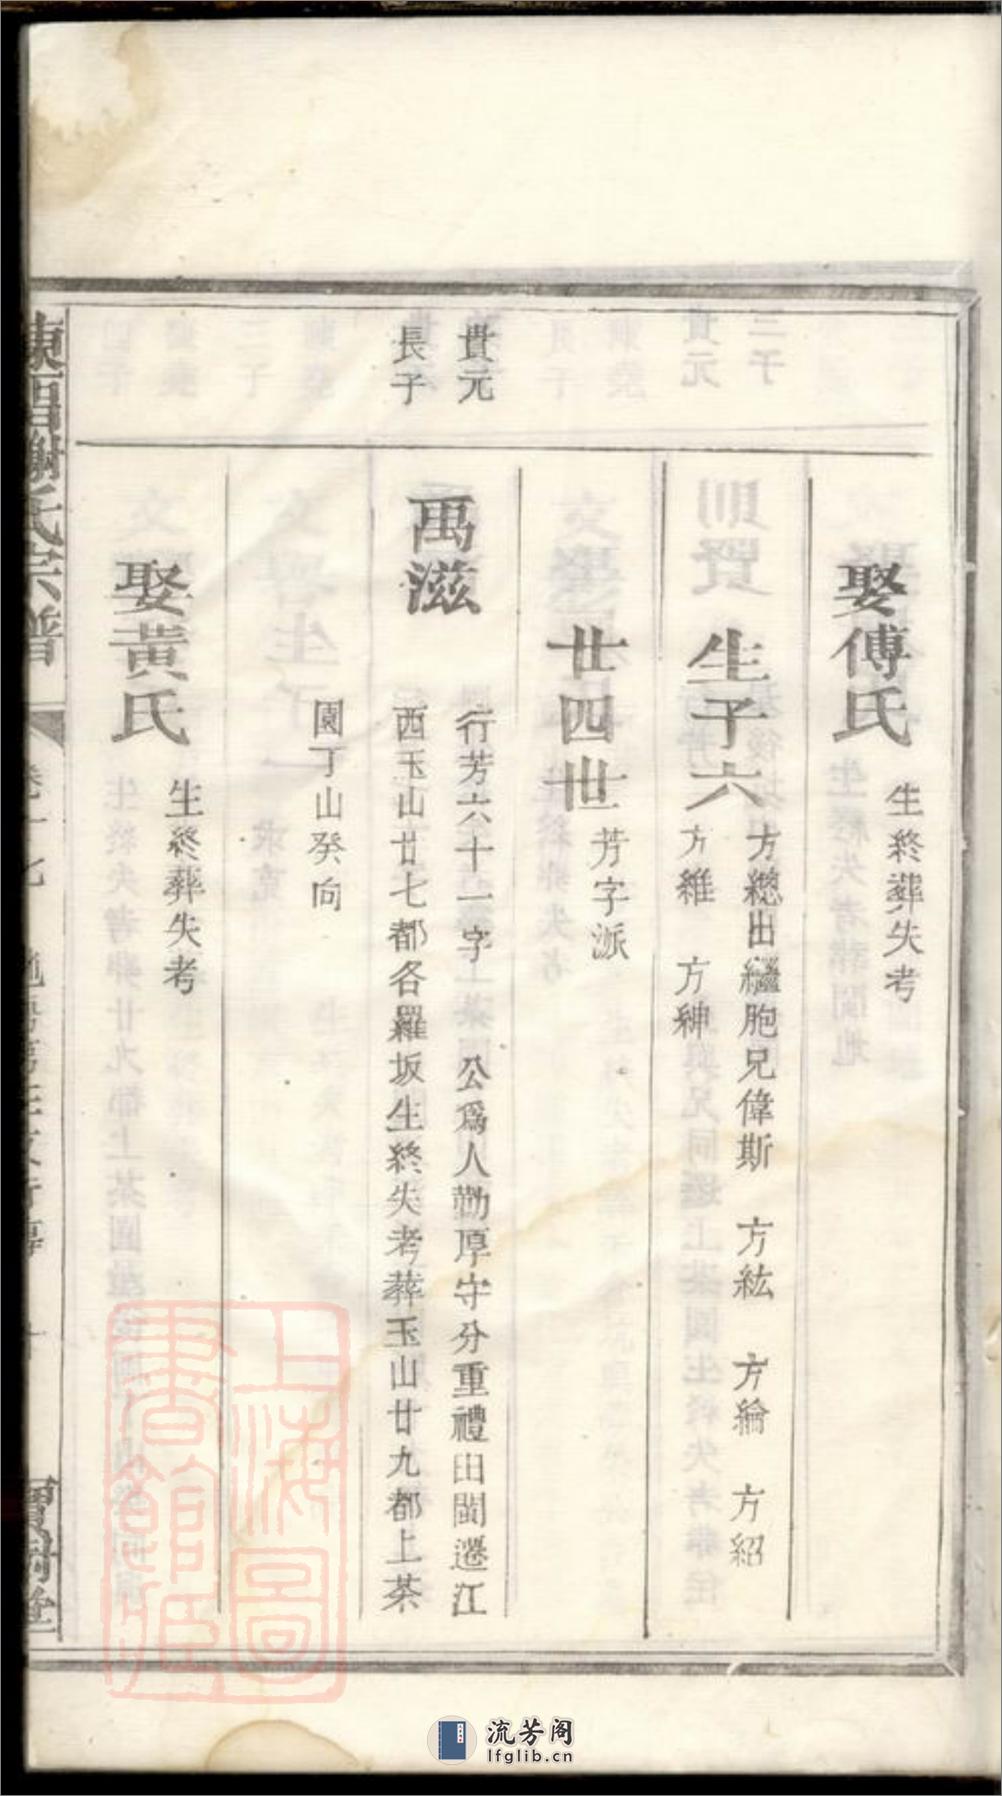 娶傅氏
生終葬失考
生子六
方總出繼胞兄偉斯 方紘 方綸 方紹
方維 方紳
廿四世
芳字派
貴元
長子
萬滋
行芳六十一字 公爲人勤厚守分重禮由閩遷江
西玉山廿七都各羅坂生終失考葬玉山廿九都上茶
園丁山癸向
娶黃氏
生終葬失考
謝氏宗譜
上海圖書館藏
流芳阁
lfglib.cn